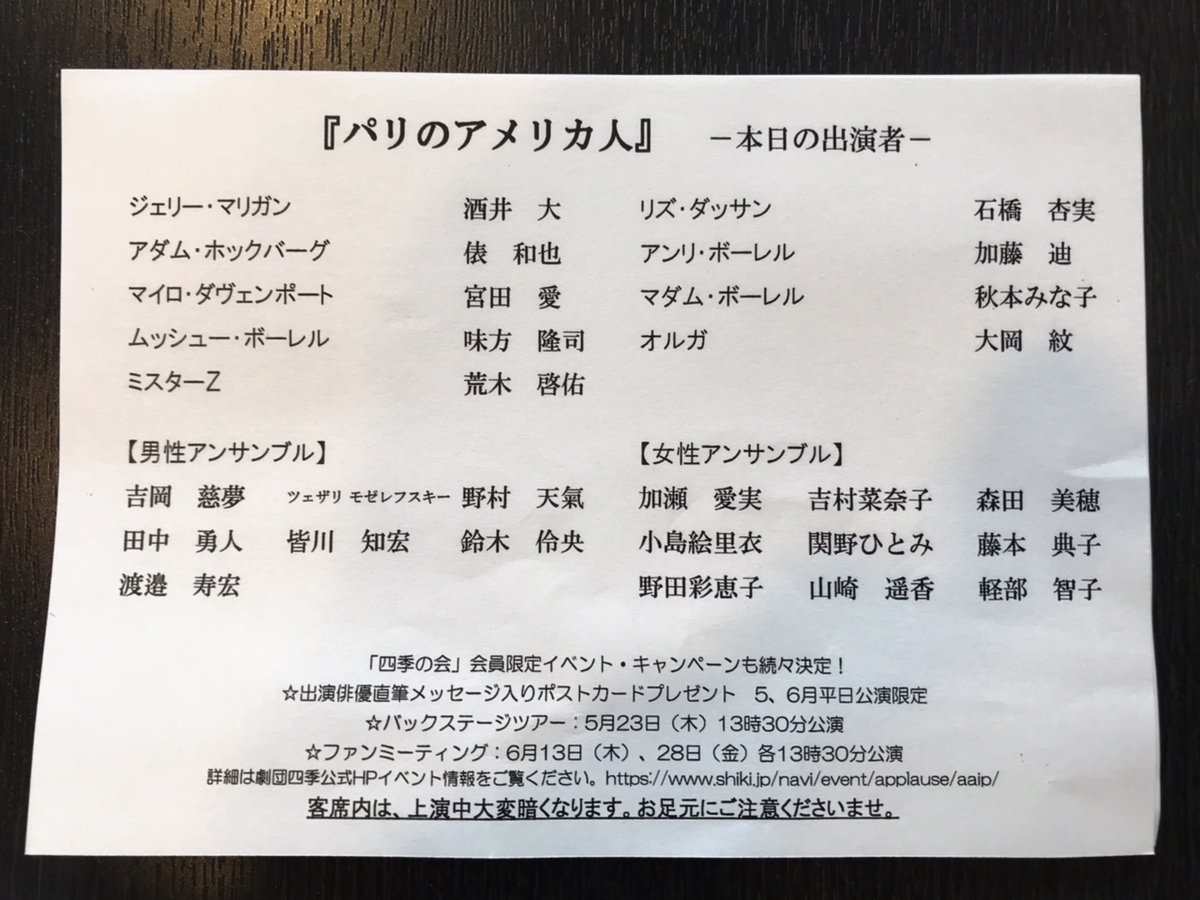 『パリのアメリカ人』　－本日の出演者－
ジェリー・マリガン　酒井　大　リズ・ダッサン　石橋　杏実
アダム・ホックバーグ　俵　和也　アンリ・ボーレル　加藤　迪
マイロ・ダヴェンポート　宮田　愛　マダム・ボーレル　秋本みな子
ムッシュー・ボーレル　味方　隆司　オルガ　大岡　紋
ミスターZ　荒木　啓佑
【男性アンサンブル】　【女性アンサンブル】
吉岡　慈夢　ツェザリ モゼレフスキー　野村　天氣　加瀬　愛実　吉村菜奈子　森田　美穂
田中　勇人　皆川　知宏　鈴木　伶央　小島絵里衣　関野ひとみ　藤本　典子
渡邉　寿宏　野田彩恵子　山崎　遥香　軽部　智子
「四季の会」会員限定イベント・キャンペーンも続々決定！
☆出演俳優直筆メッセージ入りポストカードプレゼント　5、6月平日公演限定
☆バックステージツアー：5月23日（木）13時30分公演
☆ファンミーティング：6月13日（木）、28日（金）各13時30分公演
詳細は劇団四季公式HPイベント情報をご覧ください。https://www.shiki.jp/navi/event/applause/aaip/
客席内は、上演中大変暗くなります。お足元にご注意くださいませ。